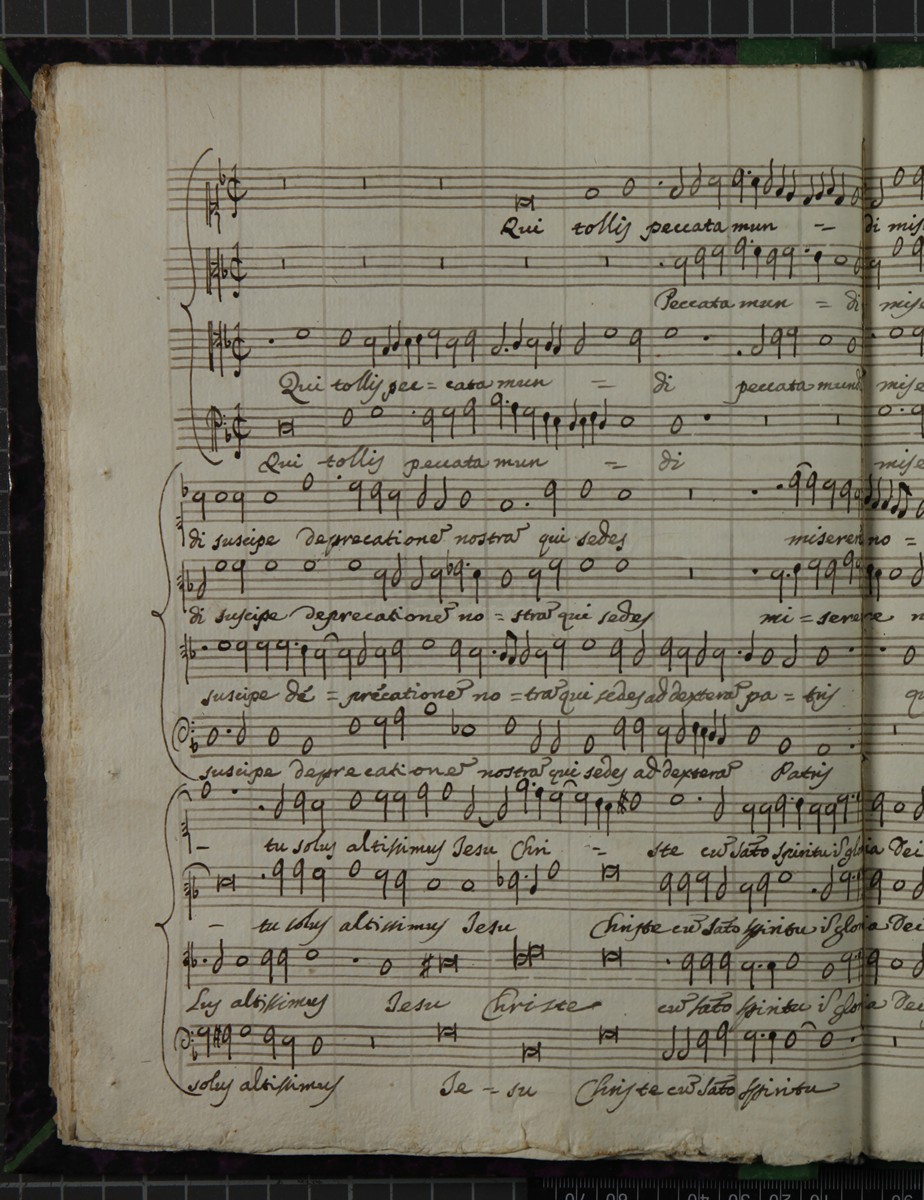 Qui tollis peccata mun = di mis
Peccata mun = di mise
Qui tollis pec = cata mun = di peccata mund mise
Qui tollis peccata mun = di mise
di suscipe deprecatione nostra qui sedes miserere no =
di suscipe deprecatione no = stra qui sedes mi = serere n
suscipe de = precatione no = tra qui sedes ad dextera pa = tris qu
suscipe deprecatione nostra qui sedes ad dextera Patris
– tu solus altissimus Jesu Chri = ste cu sato spiritu i gloria Dei
– tu solus altissimus Jesu Christe cu sato spiritu i gloria Dei
Lus altissimus Jesu Christe cu sato spiritu i gloria Dei
solus altissimus Je = su Christe cu sato spiritu